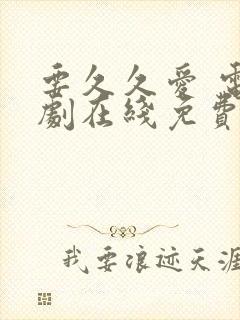 要久久愛 電
劇在綫免費
我要浪迹天涯